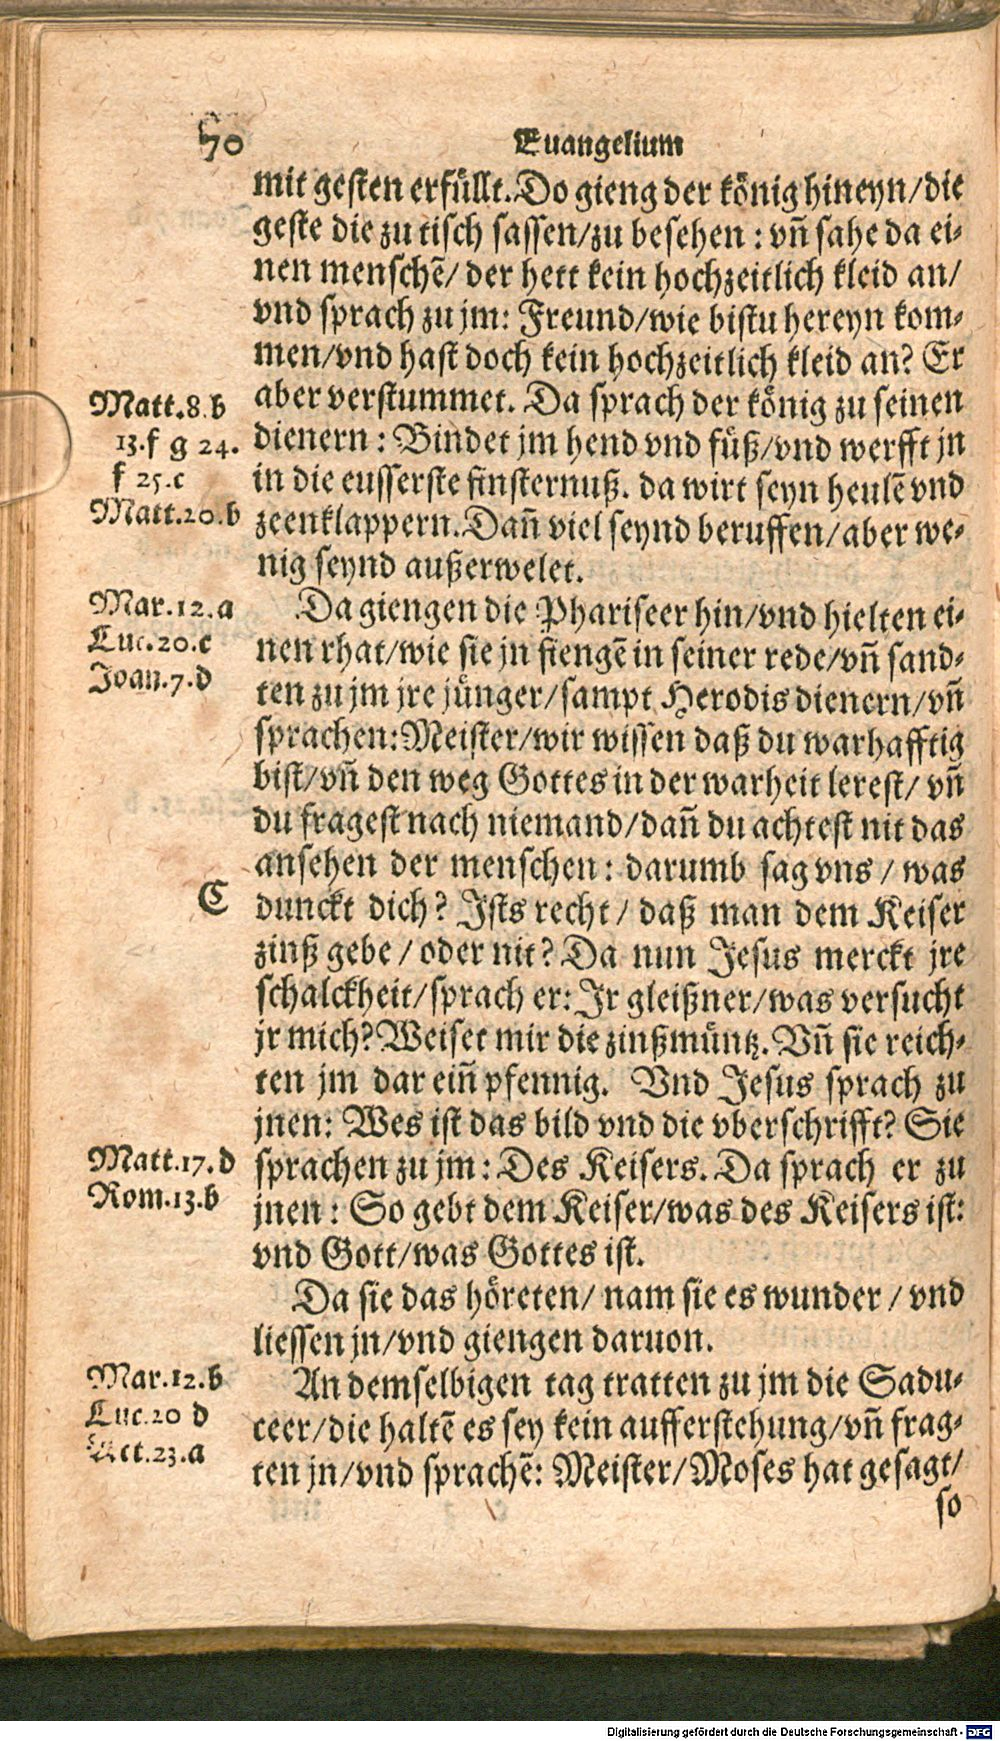 70
Euangelium
mit gesten erfüllt. Do gieng der könig hineyn/die
geste die zu tisch sassen/zu besehen : vñ sahe da ei⸗
nen menschẽ/ der hett kein hochzeitlich kleid an/
vnd sprach zu jm: Freund/wie bistu hereyn kom⸗
men/vnd hast doch kein hochzeitlich kleid an? Er
Matt.8.b
aber verstummet. Da sprach der könig zu seinen
13.f g 24.
dienern : Bindet jm hend vnd füß/vnd werfft jn
f 25.c
in die eusserste finsternuß. da wirt seyn heulẽ vnd
Matt.20.b
zeenklappern. Dañ viel seynd beruffen/aber we⸗
nig seynd außerwelet.
Mar.12.a
Da giengen die Phariseer hin/vnd hielten ei⸗
Luc.20.c
nen rhat/wie sie jn fiengẽ in seiner rede/vñ sand⸗
Joan.7.d
ten zu jm jre jünger/sampt Herodis dienern/vñ
sprachen: Meister/wir wissen daß du warhafftig
bist/vñ den weg Gottes in der warheit lerest/ vñ
du fragest nach niemand/dañ du achtest nit das
ansehen der menschen : darumb sag vns / was
C
dunckt dich? Ists recht/ daß man dem Keiser
zinß gebe / oder nit? Da nun Jesus merckt jre
schalckheit/sprach er: Ir gleißner/was versucht
jr mich? Weiset mir die zinßmüntz. Vñ sie reich⸗
ten jm dar eiñ pfennig. Vnd Jesus sprach zu
jnen: Wes ist das bild vnd die vberschrifft? Sie
Matt.17.d
sprachen zu jm : Des Keisers. Da sprach er zu
Rom.13.b
jnen : So gebt dem Keiser/was des Keisers ist:
vnd Gott/was Gottes ist.
Da sie das höreten/ nam sie es wunder / vnd
liessen jn/vnd giengen daruon.
Mar.12.b
An demselbigen tag tratten zu jm die Sadu⸗
Luc.20 d
ceer/die haltẽ es sey kein aufferstehung/vñ frag⸗
Act.23.a
ten jn/vnd sprachẽ: Meister/Moses hat gesagt/
so
Digitalisierung gefördert durch die Deutsche Forschungsgemeinschaft - DFG